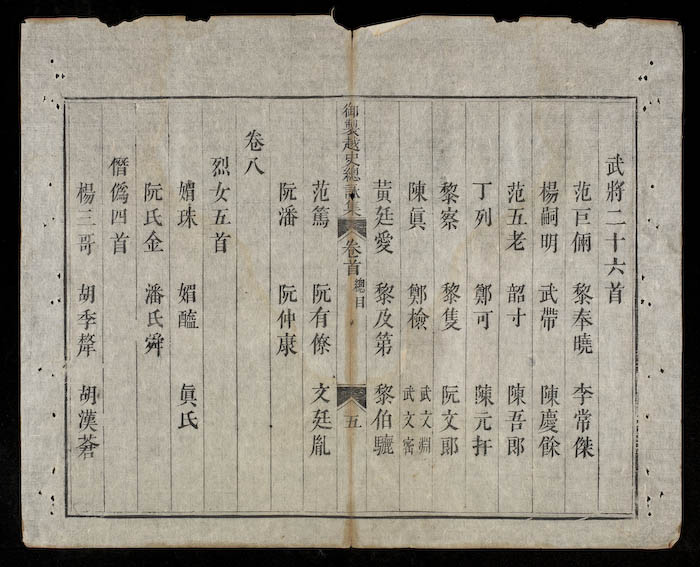 武將二十六首
范巨倆 黎奉曉 李常傑
楊嗣明 武帶 陳慶餘
范五老 韶寸 陳吾郎
丁列 鄭可 陳元扞
黎察 黎隻 阮文郎
陳眞 鄭檢 武文淵 武文密
黃廷愛 黎及第 黎伯驪
御製越史總詠集 卷首 總目 五
范篤 阮有僚 文廷胤
阮潘 阮仲康
卷八
烈女五首
媚珠 媚醯 眞氏
阮氏金 潘氏舜
僭僞四首
楊三哥 胡季犛 胡漢蒼